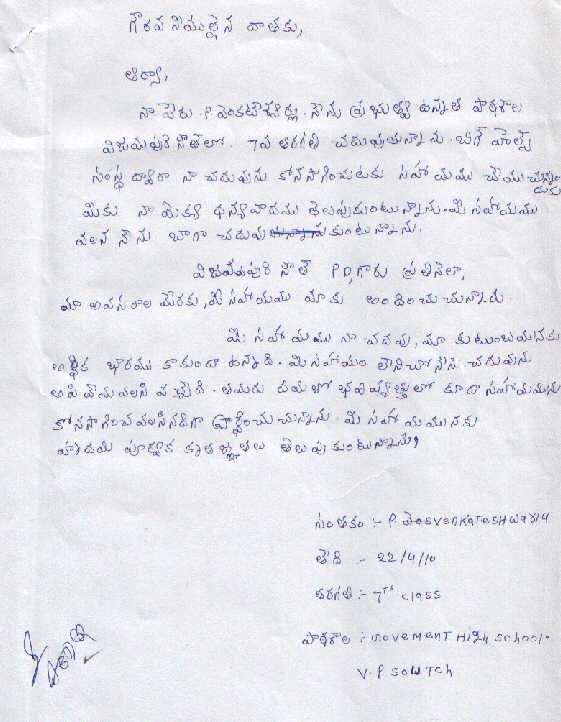 గౌరవనీయులైన దాతకు,
ఆర్యా,
నా పేరు. P. వెంకటేశ్వర్లు. నేను ప్రభుత్వ ఉన్నత పాఠశాల
విజయపురి సౌత్‌లో. 7వ తరగతి చదువుతున్నాను. బిగ్ హెల్ప్
సంస్థ ద్వారా నా చదువును కొనసాగించుటకు సహాయము చేయుచున్నందుకు
మీకు నా యొక్క ధన్యవాదములు తెలుపుకుంటున్నాను. మీ సహాయము
వలన నేను బాగా చదువుకుంటున్నాను.
విజయపురి సౌత్ P.D, గారు ప్రతినెలా,
మా అవసరాల మేరకు, మీ సహాయము మాకు అందించుచున్నారు.
మీ సహాయము నా చదువు, మా కుటుంబమునకు
ఆర్థిక భారము కాకుండా ఉన్నది. మీ సహాయం లేనిచో నేను చదువును
ఆపి వేయవలసి వచ్చేది. తమరు దయతో భవిష్యత్తులో కూడా సహాయమును
కొనసాగించవలసినదిగా ప్రార్థించుచున్నాను. మీ సహాయమునకు
హృదయ పూర్వక కృతజ్ఞతలు తెలుపుకుంటున్నాను,
సంతకం :- P.
తేది :- 22/4/10
తరగతి :- 7th class
పాఠశాల :- Government High school.
V.P South